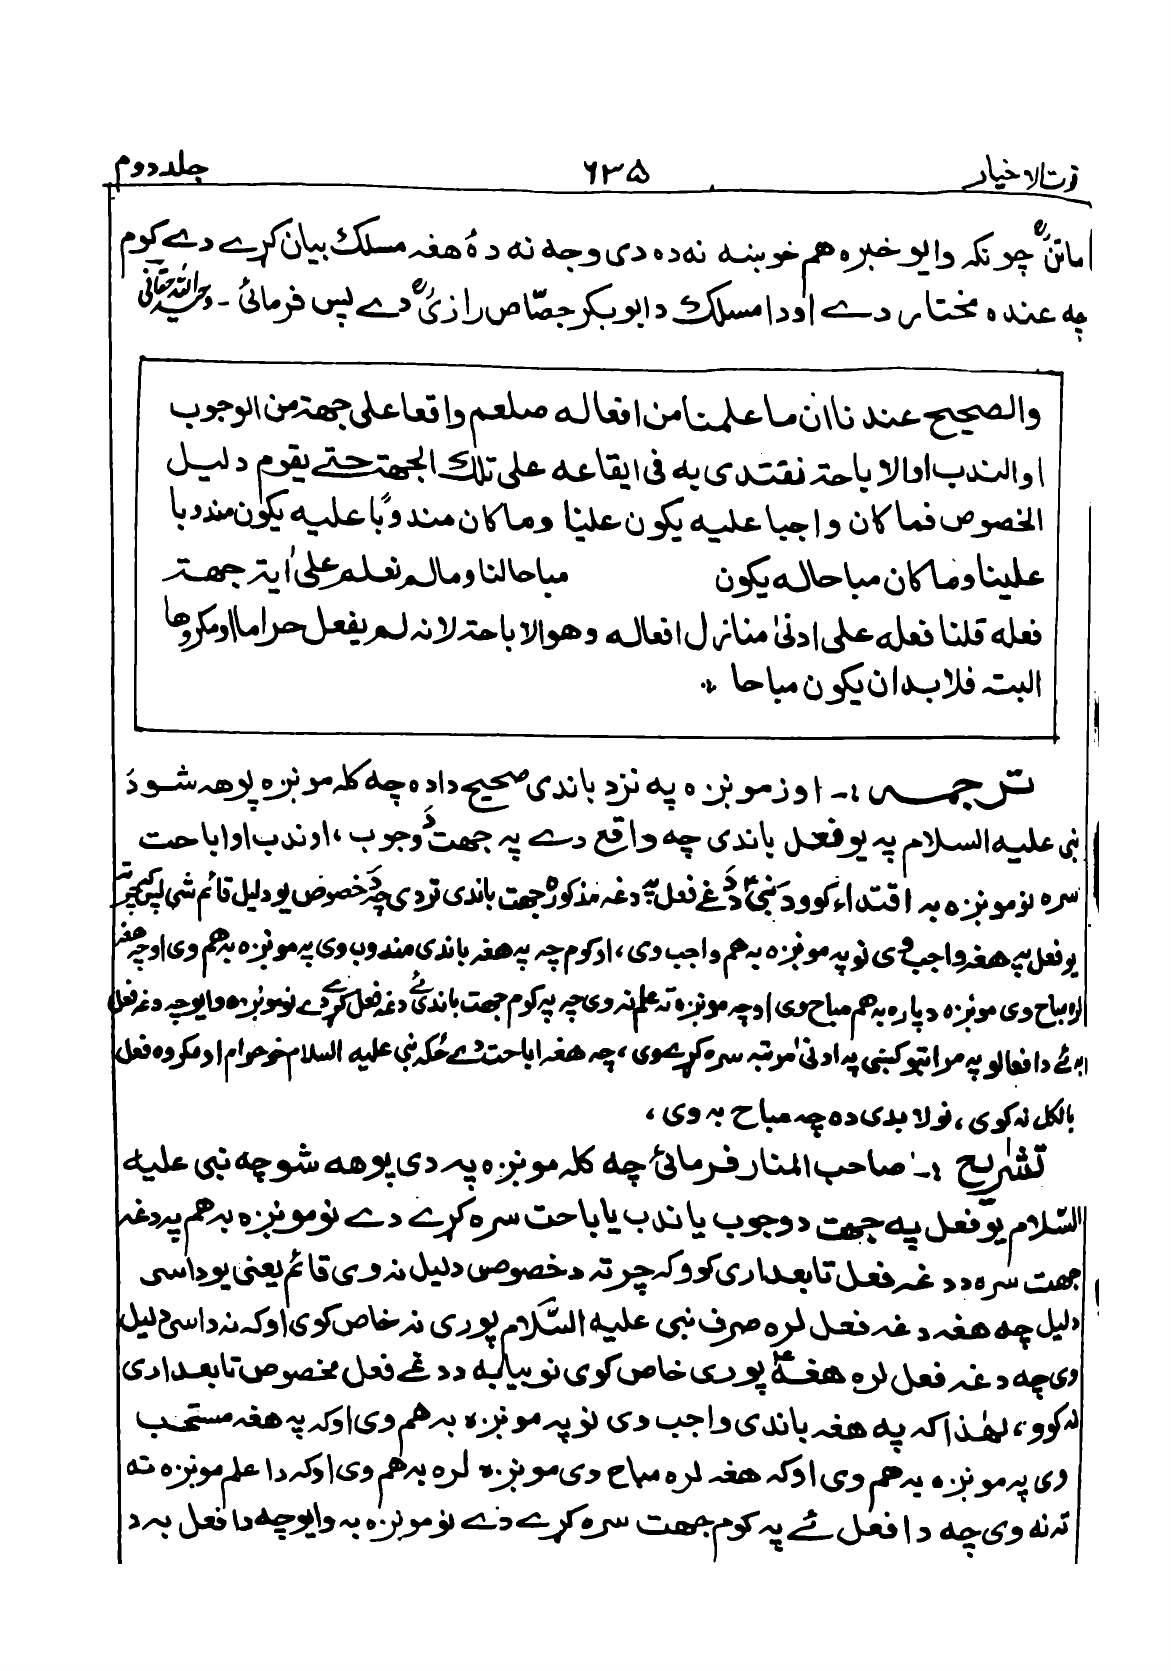 قوت الاخیار ۶۳۵ جلد دوم
ماتن چونکہ وایو خبره هم خوښه نه ده دی وجه نه دهٔ هغه مسلک بیان کړے دے کوم
چه عنده مختار دے اودا مسلک د ابوبکر جصّاص رازیؒ دے پس فرمائی -
والصحیح عندنا ان ما علمنا من افعاله صلعم واقعا علی جهة من الوجوب
او الندب او الاباحة نقتدی به فی ایقاعه علی تلک الجهة حتے یقوم دلیل
الخصوص فما کان واجبا علیه یکون علینا وما کان مندوبًا علیه یکون مندوبا
علینا وما کان مباحا له یکون مباحا لنا وما لم نعلم علیٰ ایة جهة
فعله قلنا فعله علی ادنیٰ منازل افعاله وهو الاباحة لانه لم یفعل حراما او مکروها
البتہ فلا بد ان یکون مباحا
ترجمہ :- اوز مونږه په نزد باندی صحیح داده چه کله مونږه پوهه شو دَ
نبی علیه السلام په یو فعل باندی چه واقع دے په جهت دَ وجوب، او ندب او اباحت
سره نو مونږه به اقتداء کوو دَ نبی دَ دغے فعل په دغه مذکوره جهت باندی تردی چه دَ خصوص یو دلیل قائم شی پس کم چرته
یو فعل په هغه واجب وی نو په مونږه به هم واجب وی، او کوم چه په هغه باندی مندوب وی په مونږه به هم وی او چه هغه
لره مباح وی مونږه دپاره به هم مباح وی او چه مونږه ته علم نه وی چه په کوم جهت باندی ئے دغه فعل کړے دے نو مونږه وایو چه دغه فعل
به ئے د افعالو په مراتبو کښی په ادنیٰ مرتبه سره کړے وی، چه هغه اباحت دے ځکه نبی علیه السلام خو حرام او مکروه فعل
بالکل نه کوی، نو لابدی ده چه مباح به وی،
تشریح :- صاحب المنار فرمائی چه کله مونږه په دی پوهه شو چه نبی علیه
السّلام یو فعل په جهت د وجوب یا ندب یا اباحت سره کړے دے نو مونږه به هم په دغه
جهت سره د دغه فعل تابعداری کوو که چرته د خصوص دلیل نه وی قائم یعنی یو داسی
دلیل چه هغه دغه فعل لره صرف نبی علیه السّلام پوری نه خاص کوی او که نه داسی دلیل
وی چه دغه فعل لره هغهٔ پوری خاص کوی نو بیا به د دغے فعل مخصوص تابعداری
نه کوو، لهٰذا که په هغه باندی واجب وی نو په مونږه به هم وی او که په هغه مستحب
وی په مونږه به هم وی او که هغه لره مباح وی مونږه لره به هم وی او که دا علم مونږه ته
ته نه وی چه دا فعل ئے په کوم جهت سره کړے دے نو مونږه به وایو چه دا فعل به د